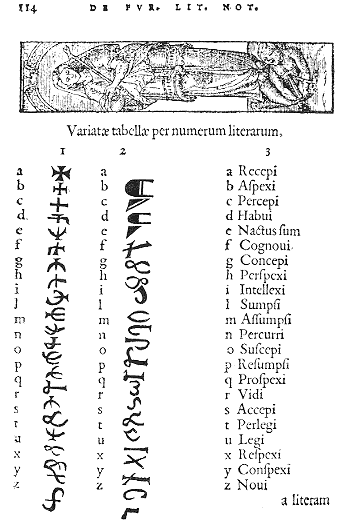 114 DE FVR. LIT. NOT.
Variatæ tabellæ per numerum literarum,
1 2 3
a a a Recepi
b b b Aſpexi
c c c Percepi
d d d Habui
e e e Nactus ſum
f f f Cognoui
g g g Concepi
h h h Perſpexi
i i i Intellexi
l l l Sumpſi
m m m Aſſumpſi
n n n Percurri
o o o Suſcepi
p p p Reſumpſi
q q q Proſpexi
r r r Vidi
s s s Accepi
t t t Perlegi
u u u Legi
x x x Reſpexi
y y y Conſpexi
z z z Noui
a literam